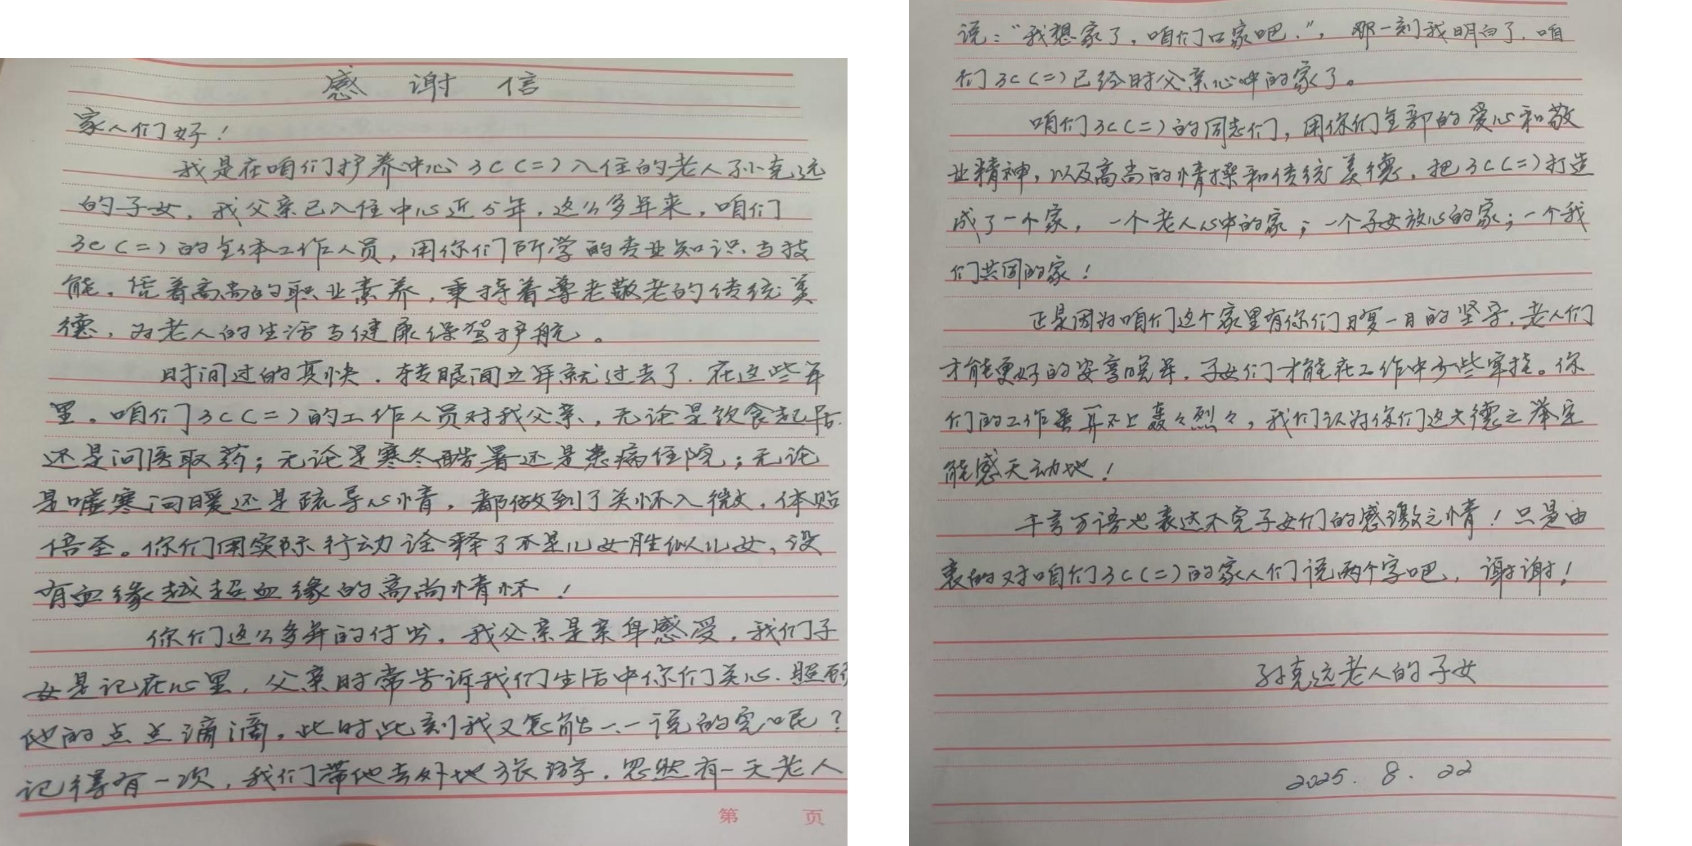 感谢信
家人们好！
我是在咱们护养中心3C(二)入住的老人孙克远
的子女，我父亲已入住中心近5年，这么多年来，咱们
3C(二)的全体工作人员，用你们所学的专业知识、与技
能，凭着高尚的职业素养，秉持着尊老敬老的传统美
德，为老人的生活与健康保驾护航。
时间过的真快，转眼间五年就过去了，在这些年
里，咱们3C(二)的工作人员对我父亲，无论是饮食起居
还是问医取药；无论是寒冬酷暑还是患病住院；无论
是嘘寒问暖还是疏导心情，都做到了关怀入微，体贴
倍至。你们用实际行动诠释了不是儿女胜似儿女，没
有血缘越超血缘的高尚情怀！
你们这么多年的付出，我父亲是亲身感受，我们子
女是记在心里，父亲时常告诉我们生活中你们关心、照顾
他的点点滴滴，此时此刻我又怎能一一说的完呢？
记得有一次，我们带他去外地旅游，忽然有一天老人
第 页
说："我想家了，咱们回家吧."，那一刻我明白了，咱
们3C(二)已经时父亲心中的家了。
咱们3C(二)的同志们，用你们全部的爱心和敬
业精神，以及高尚的情操和传统美德，把3C(二)打造
成了一个家，一个老人心中的家；一个子女放心的家；一个我
们共同的家！
正是因为咱们这个家里有你们日复一日的坚守，老人们
才能更好的安享晚年，子女们才能在工作中少些牵挂。你
们的工作虽算不上轰々烈々，我们认为你们这大德之举定
能感天动地！
千言万语也表达不完子女们的感激之情！只是由
衷的对咱们3C(二)的家人们说两个字吧，谢谢！
孙克远老人的子女
2025.8.22